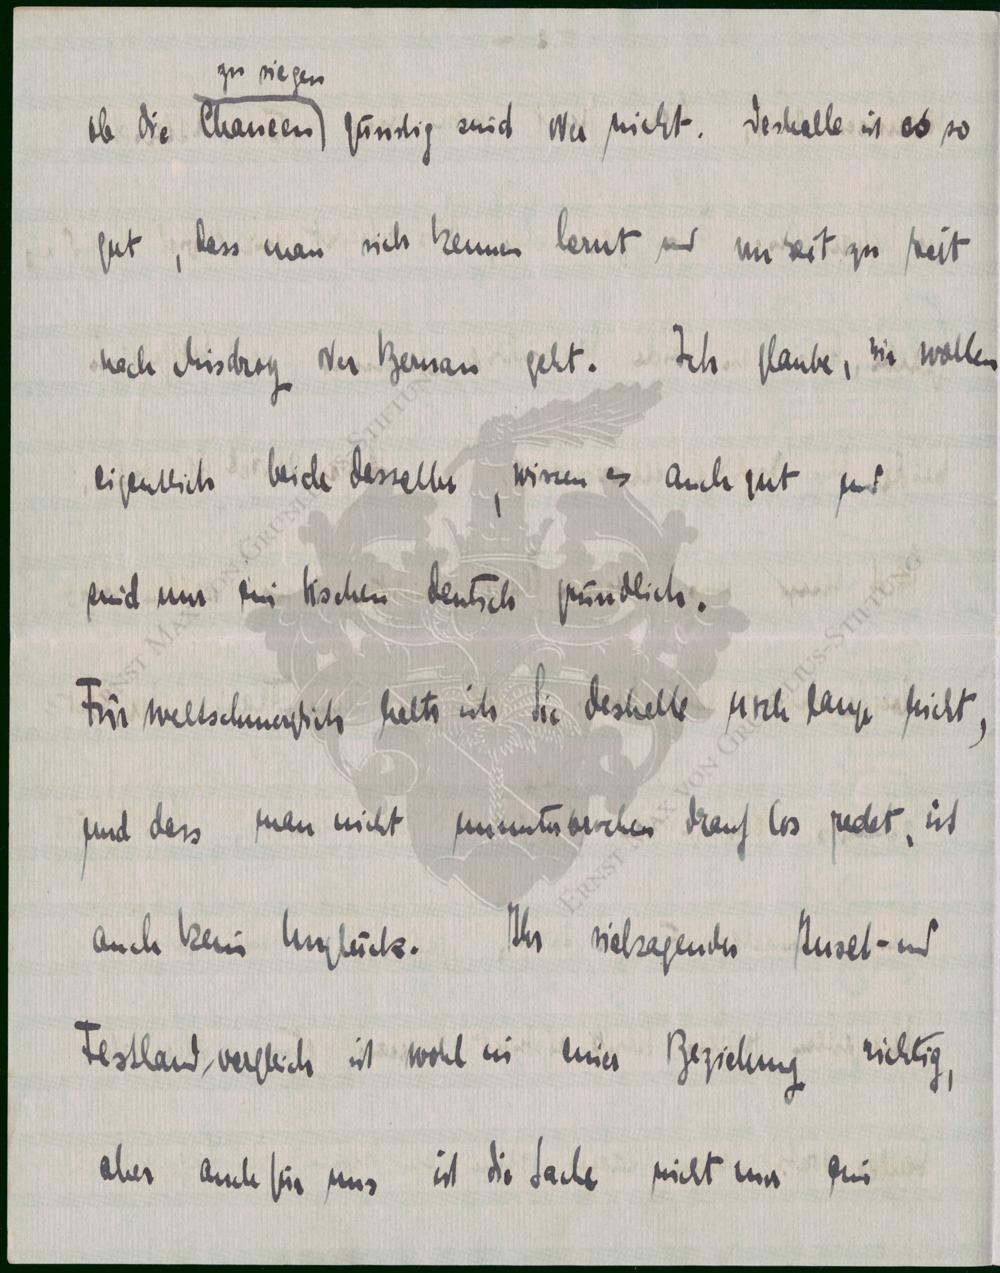 zu siegen
ob die Chancen günstig sind oder nicht. Deshalb ist es so
gut, dass man sich kennen lernt und von Zeit zu Zeit
nach Misdroy oder geht. Ich glaube, wir wollen
eigentlich beide dasselbe, wissen es auch gut und
sind nur ein bischen deutsch gründlich.
Für weltschmerzlich halte ich Sie deshalb noch lange nicht,
und dass man nicht ununterbrochen drauf los redet, ist
auch kein Unglück. Ihr vielsagender Insel- und
Festlandvergleich ist wohl in einer Beziehung richtig,
aber auch für uns ist die Sache nicht nur ein
ERNST MAX VON GRUNELIUS-STIFTUNG
ERNST MAX VON GRUNELIUS-STIFTUNG